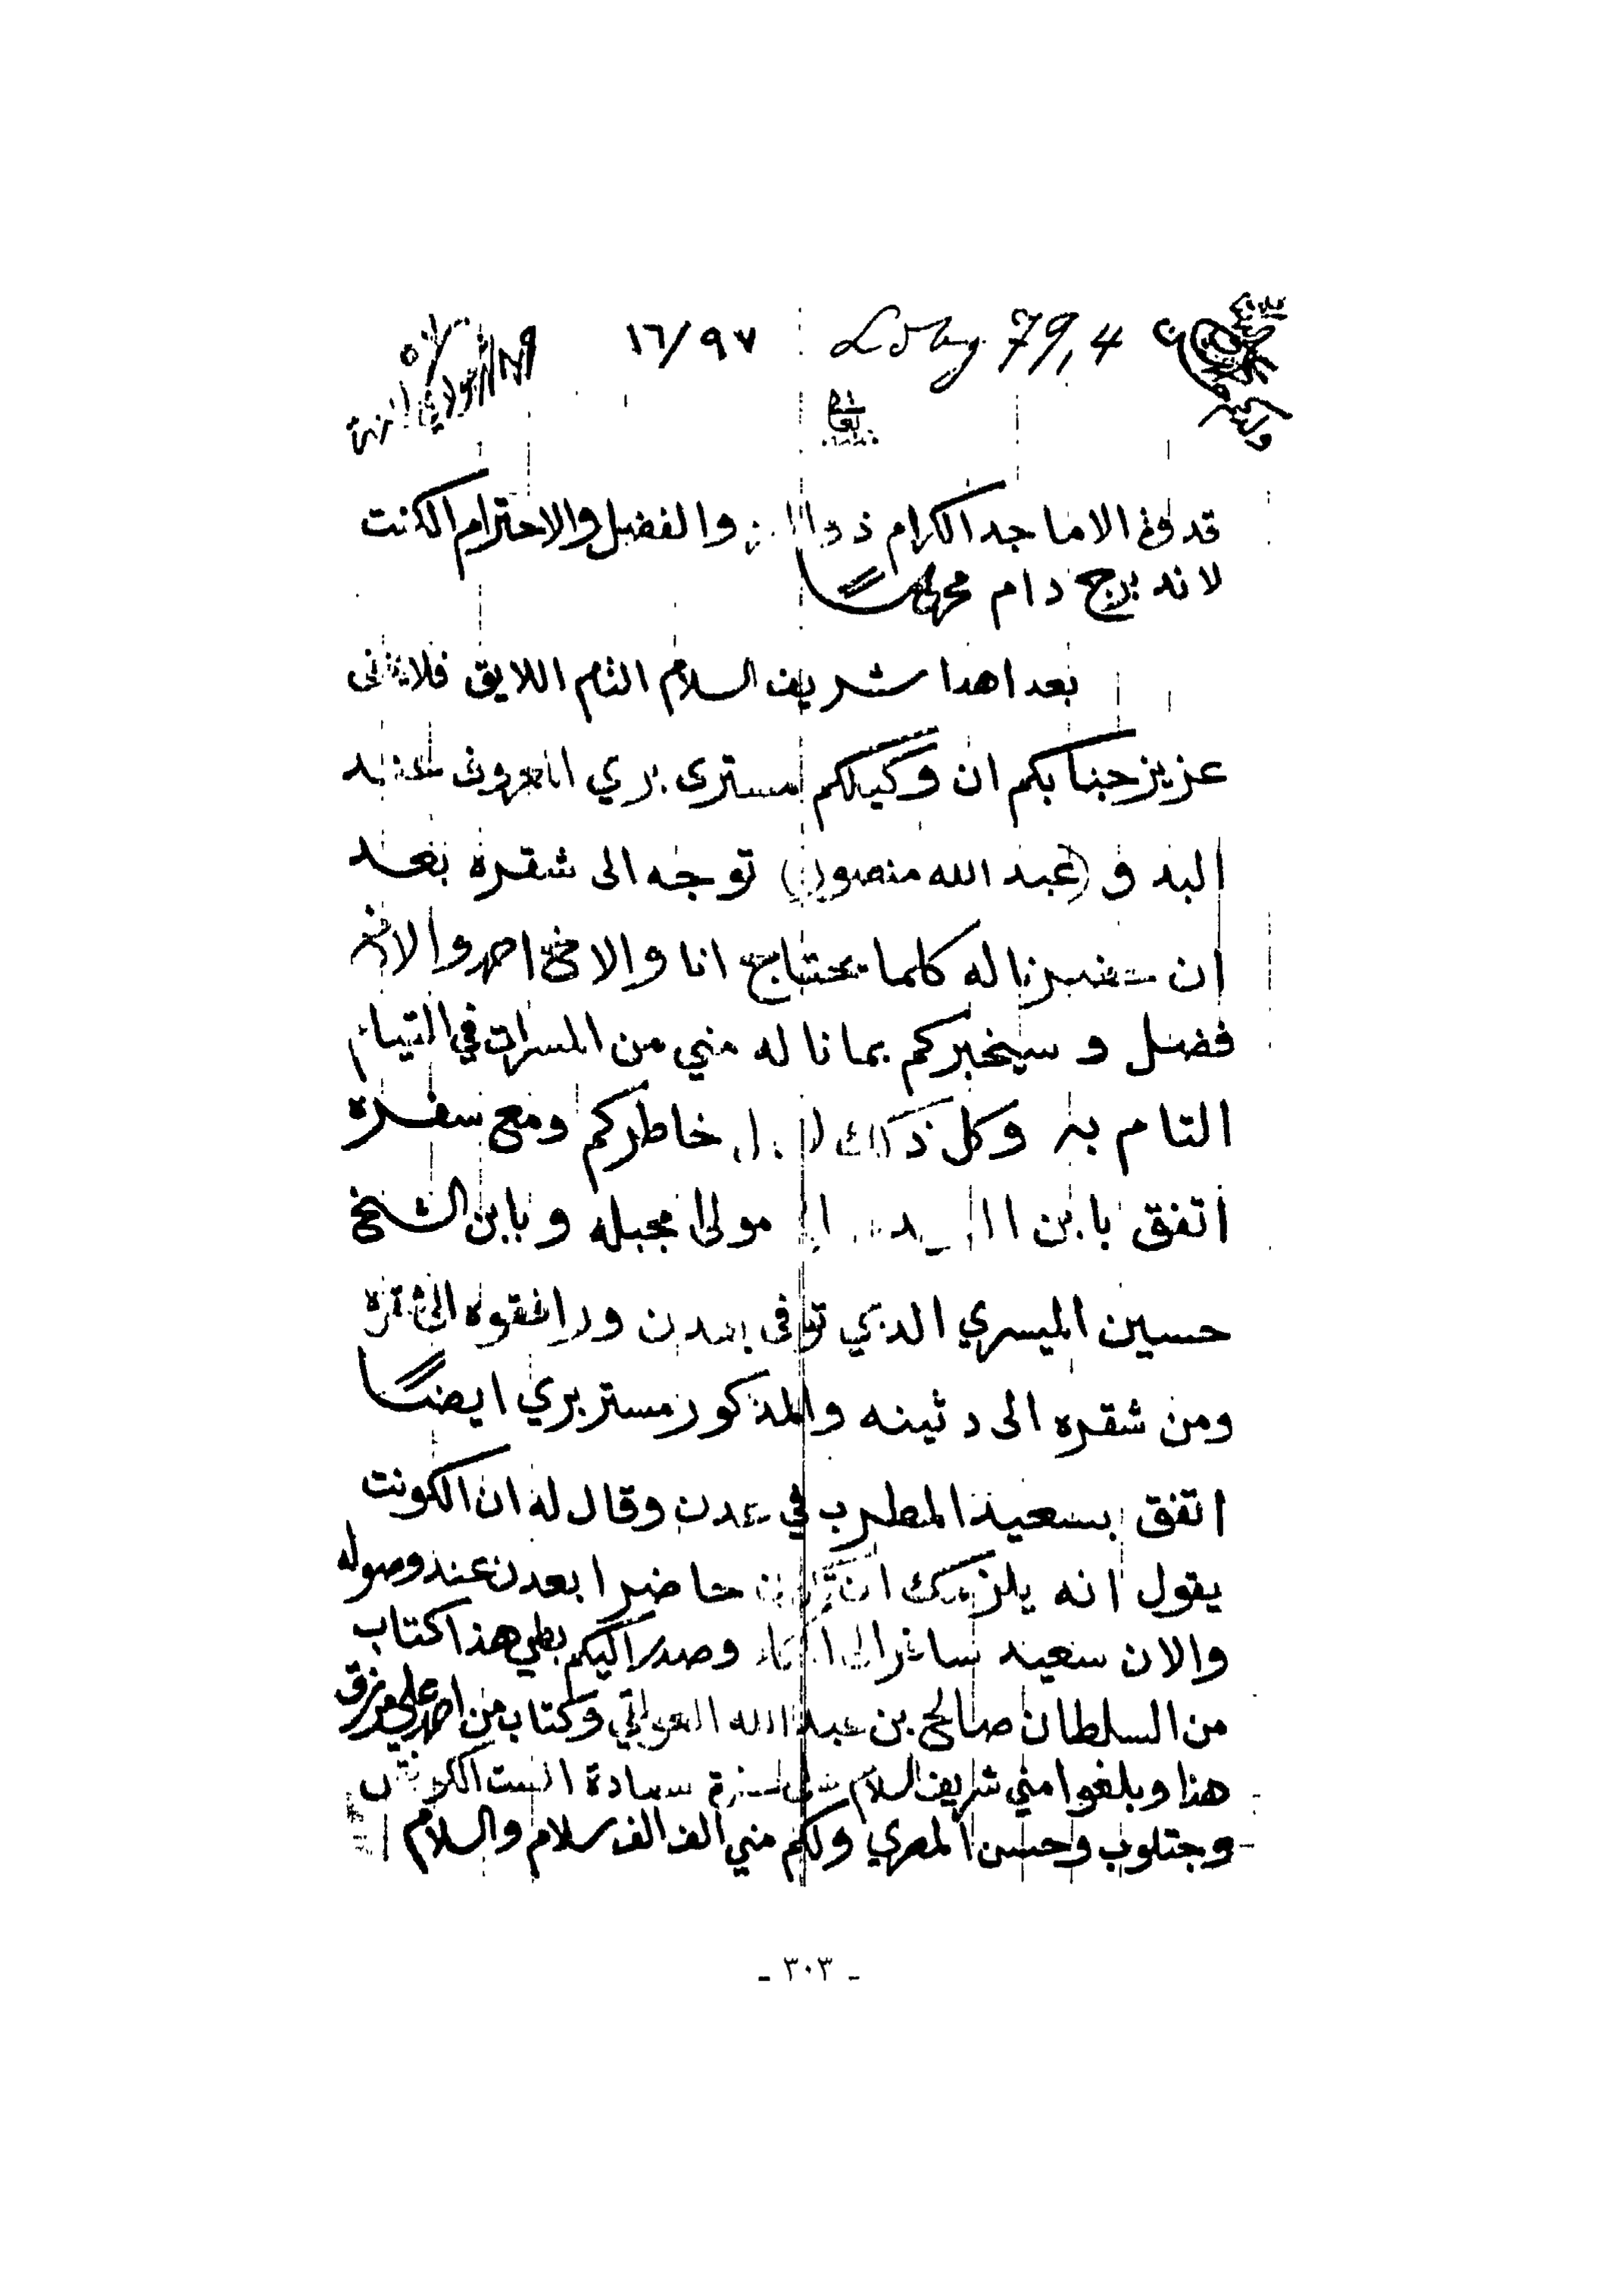 Ldbg. 79,4
١٦/٩٧
تعالى
قدوة الاماجد الكرام ذو والفضل والاحترام الكنت
لاندبرج دام محروسًا
بعد اهدا شريف السلام التام اللايق فلا يخفى
عزيز جنابكم ان وكيلكم مستر بري المعروف عند
البدو (عبد الله منصور) توجه الى شقره بعد
ان حضرنا له كلما يحتاج انا والاخ احمد والاخ
فضل وسيخبركم بما ناله مني من المسرات في القيام
التام به وكل ذلك خاطركم ومع سفره
اتفق بابن مولى مجبله وبابن الشيخ
حسين الميسري الذي توفى بعدن ورافقوه الى شقره
ومن شقره الى دثينه والمذكور مستر بري ايضًا
اتفق بسعيد المطرب في عدن وقال له ان الكونت
يقول انه يلزمك ان تكون حاضرا بعدن عند وصوله
والان سعيد سافر الى وصدر اليكم بطي هذا كتاب
من السلطان صالح بن عبد الله العولقي وكتاب من احمد علي مرزق
هذا وبلغوا مني شريف السلام سعادة الست
وجتلوب وحسن المصري ولكم مني الف الف سلام والسلام
- ٣٠٣ -